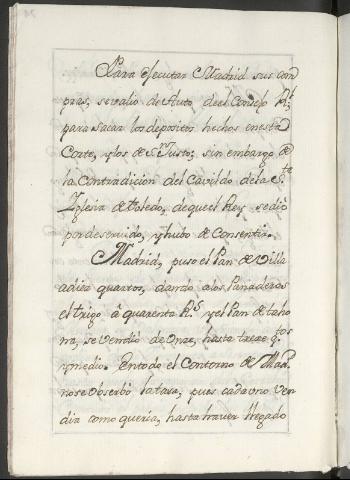 Para ejecutar Madrid sus com
pras, sevalió de Auto del Consejo Rl.
para sacar los depositos hechos enesta
Corte, y los de Sn. Justo; sin embargo de
la Contradicion del Cavildo dela Sta.
Iglesia de Toledo, deque el Rey sedió
por deservido, y hubo de Consentir.
Madrid, puso el Pan de Villa
adiez quartos, dando alos Panaderos
el trigo â quarenta Rs. y el Pan de taho
na, se vendió de Onze, hasta treze qtos
y medio. En todo el Contorno de Madd.
nose observó la tasa; pues cada uno ven
dia como queria, hasta haver llegado